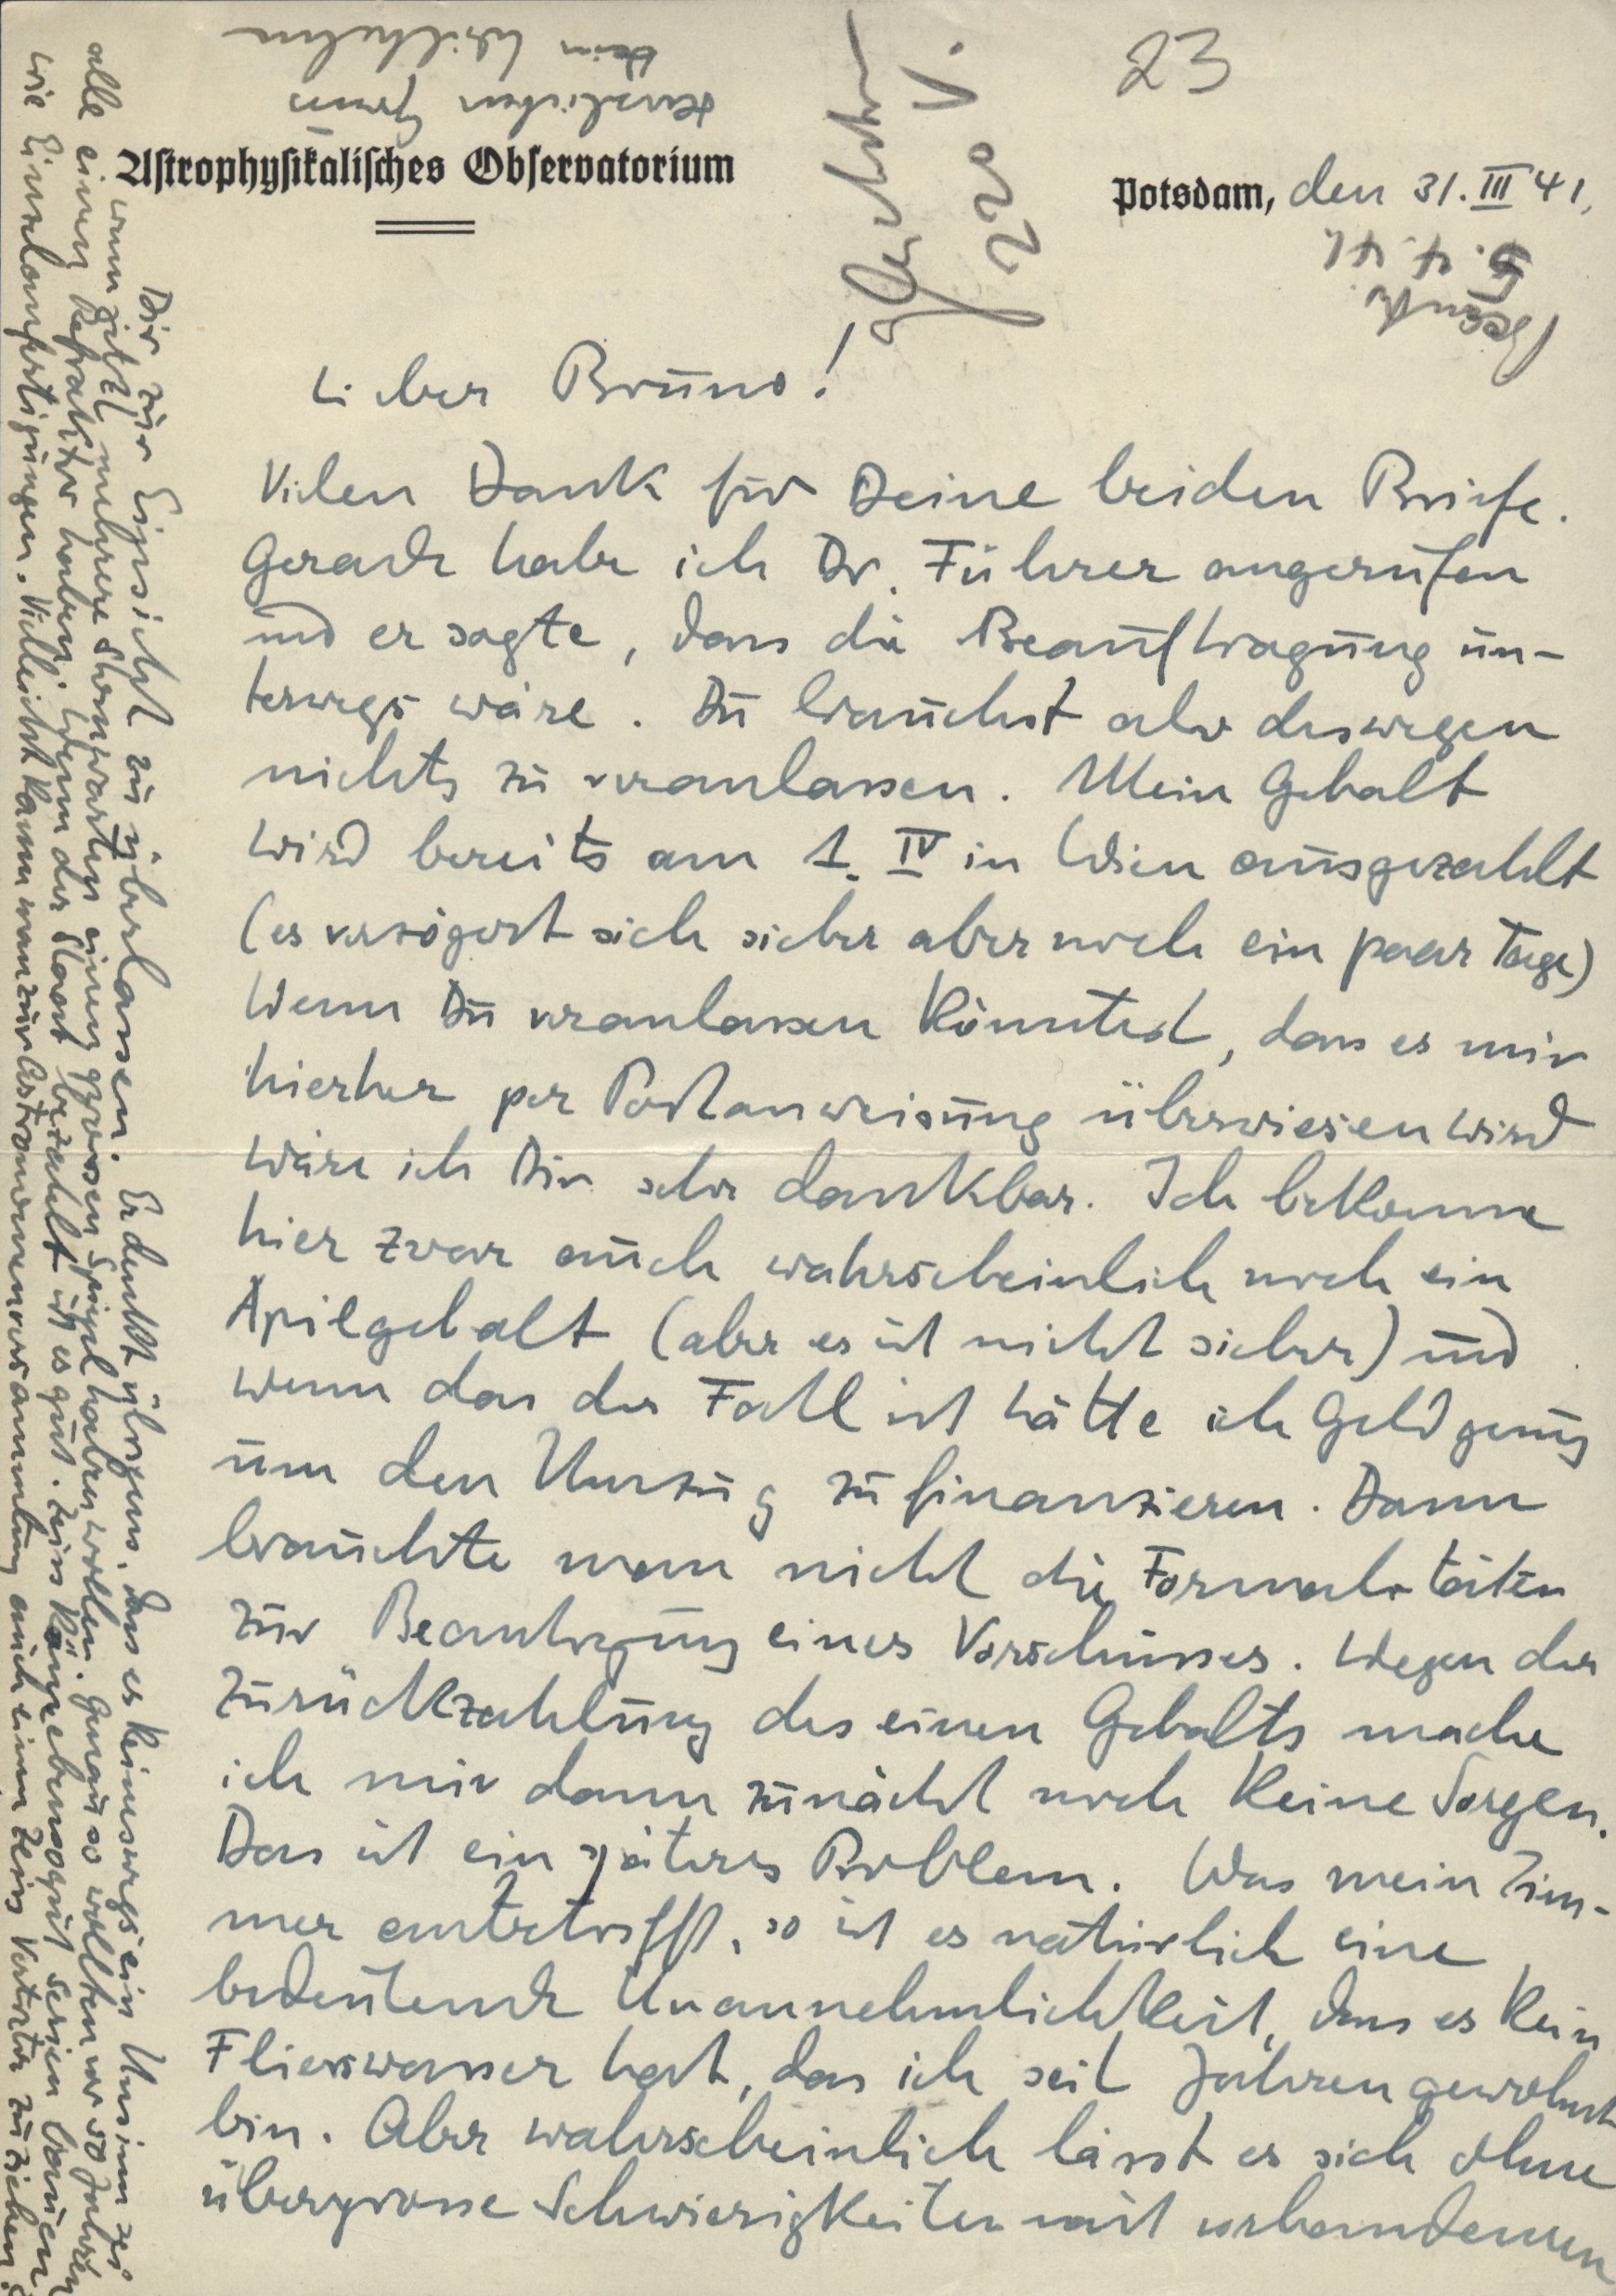 23
Astrophysikalisches Observatorium
Potsdam, den 31. III 41.
5. 4. 41
220 V.
Lieber Bruno!
Vielen Dank für Deine beiden Briefe.
Gerade habe ich Dr. Führer angerufen
und er sagte, dass die Beauftragung un-
terwegs wäre. Du brauchst also deswegen
nichts zu veranlassen. Mein Gehalt
wird bereits am 1. IV in Wien ausgezahlt
(es verzögert sich sicher aber noch ein paar Tage)
Wenn Du veranlassen könntest, dass es mir
hierher per Postanweisung überwiesen wird
wäre ich Dir sehr dankbar. Ich bekomme
hier zwar auch wahrscheinlich noch ein
Aprilgehalt (aber es ist nicht sicher) und
wenn das der Fall ist hätte ich Geld genug
um den Umzug zu finanzieren. Dann
brauchte man nicht die Formalitäten
zur Beantragung eines Vorschusses. Wegen der
Zurückzahlung des einen Gehalts mache
ich mir dann zunächst noch keine Sorgen.
Das ist ein späteres Problem. Was mein Zim-
mer anbetrifft, so ist es natürlich eine
bedeutende Unannehmlichkeit, dass es kein
Fliesswasser hat, das ich seit Jahren gewohnt
bin. Aber wahrscheinlich lässt es sich ohne
übergrosse Schwierigkeiten mit vorhandenen
Dir zur Einsicht zu überlassen. Er denkt übrigens, dass es keineswegs ein Unsinn sei
wenn jetzt mehrere Sternwarten einen grossen Spiegel haben wollen. Genau so wollten vor 50 Jahren
alle einen Refraktor haben; wenn der Staat bezahlt ist es gut. Zeiss kann ebensogut Serien bauen
wie Einzelanfertigungen. Vielleicht kann man zur Astronomenversammlung auch einen Zeiss Vertreter zuziehen.
Herzlichen Gruss
Dein Wilhelm